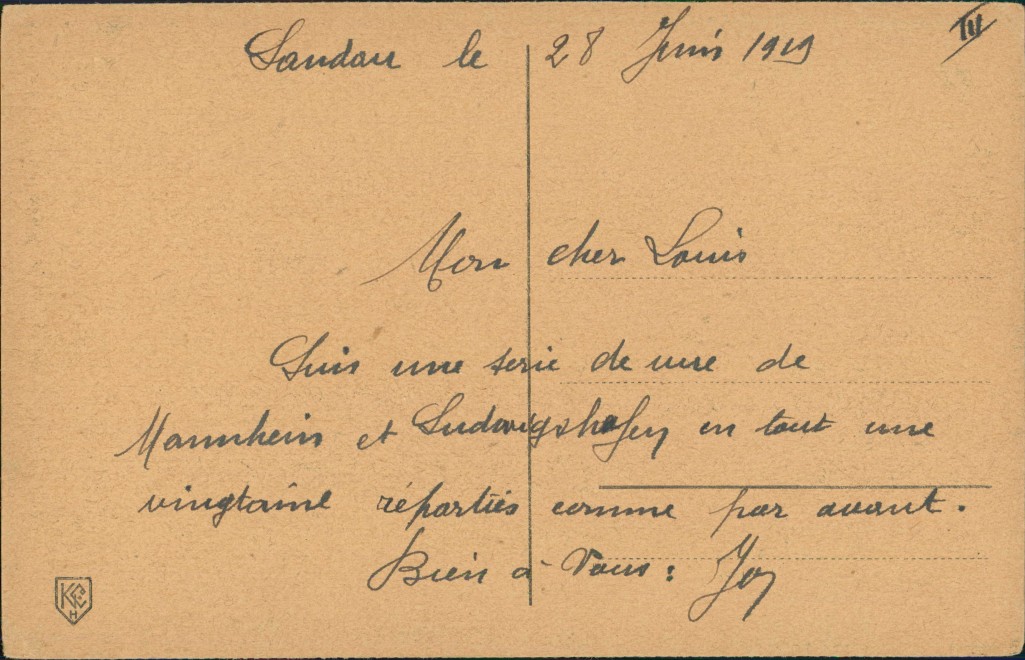 Landau le 28 Juin 1919
III
Mon cher Louis
Suis une serie de vue de
Mannheim et Ludwigshafen en tout une
vingtaine réparties comme par avant.
Bien à Vous : Joy
K
H